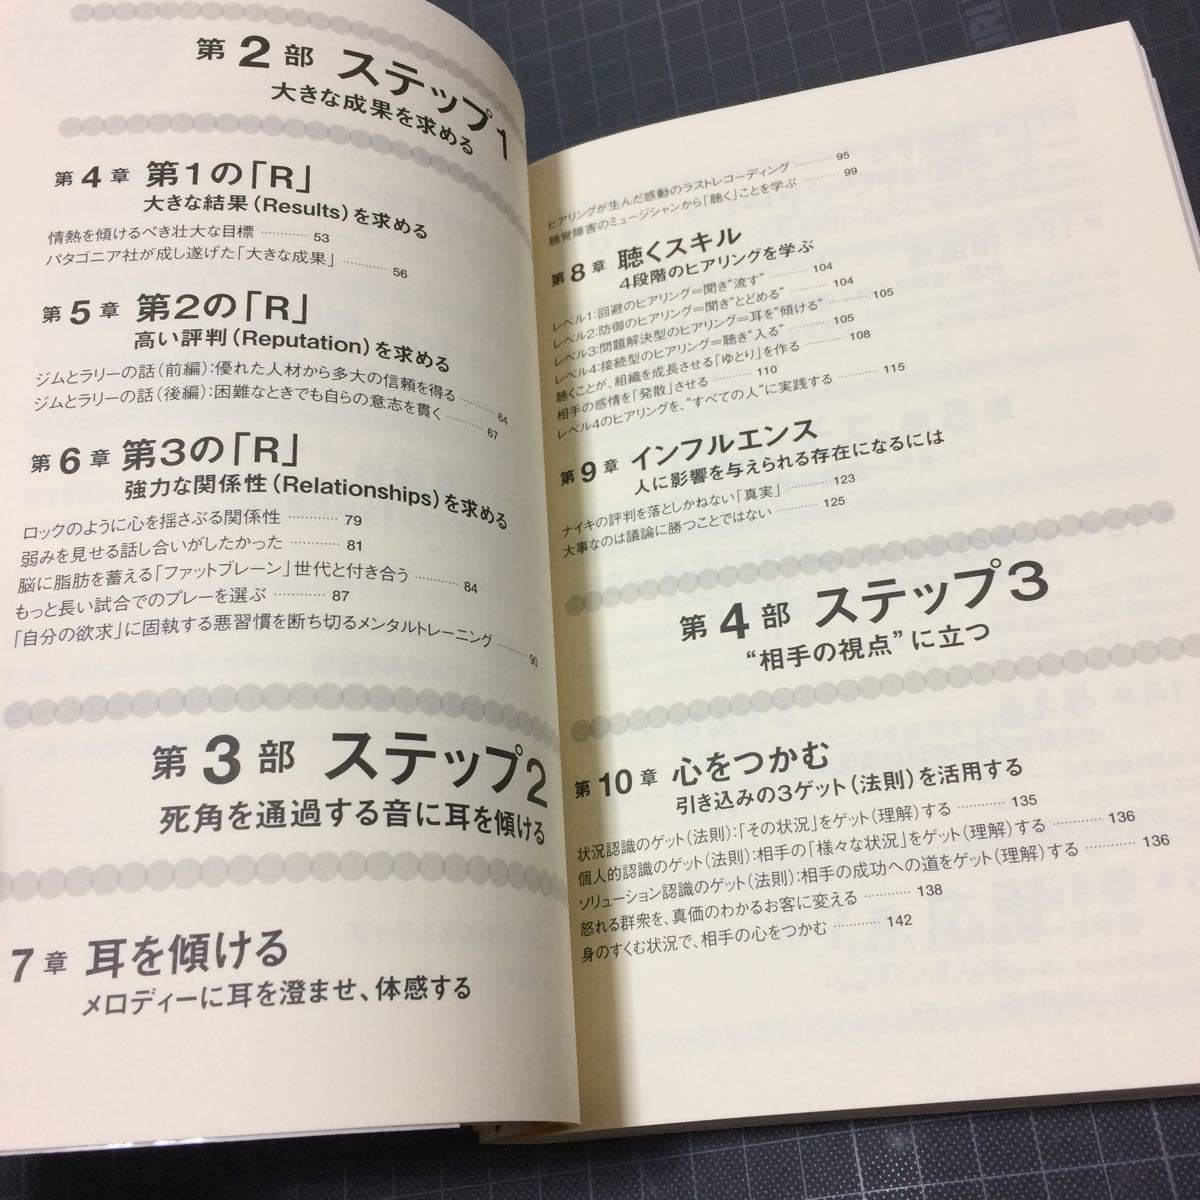 第2部 ステップ1
大きな成果を求める
第4章 第1の「R」
大きな結果(Results)を求める
情熱を傾けるべき壮大な目標 ………… 53
パタゴニア社が成し遂げた「大きな成果」 ………… 56
第5章 第2の「R」
高い評判(Reputation)を求める
ジムとラリーの話(前編):優れた人材から多大の信頼を得る ………… 64
ジムとラリーの話(後編):困難なときでも自らの意志を貫く ………… 67
第6章 第3の「R」
強力な関係性(Relationships)を求める
ロックのように心を揺さぶる関係性 ………… 79
弱みを見せる話し合いがしたかった ………… 81
脳に脂肪を蓄える「ファットブレーン」世代と付き合う ………… 84
もっと長い試合でのプレーを選ぶ ………… 87
「自分の欲求」に固執する悪習慣を断ち切るメンタルトレーニング ………… 90
第3部 ステップ2
死角を通過する音に耳を傾ける
7章 耳を傾ける
メロディーに耳を澄ませ、体感する
ヒアリングが生んだ感動のラストレコーディング ………… 95
聴覚障害のミュージシャンから「聴く」ことを学ぶ ………… 99
第8章 聴くスキル
4段階のヒアリングを学ぶ
レベル1:回避のヒアリング=聞き“流す” ………… 104
レベル2:防御のヒアリング=聞き“とどめる” ………… 104
レベル3:問題解決型のヒアリング=耳を“傾ける” ………… 105
レベル4:接続型のヒアリング=聴き“入る” ………… 105
聴くことが、組織を成長させる「ゆとり」を作る ………… 108
相手の感情を「発散」させる ………… 110
レベル4のヒアリングを、“すべての人”に実践する ………… 115
第9章 インフルエンス
人に影響を与えられる存在になるには
ナイキの評判を落としかねない「真実」 ………… 123
大事なのは議論に勝つことではない ………… 125
第4部 ステップ3
“相手の視点”に立つ
第10章 心をつかむ
引き込みの3ゲット(法則)を活用する
状況認識のゲット(法則):「その状況」をゲット(理解)する ………… 135
個人的認識のゲット(法則):相手の「様々な状況」をゲット(理解)する ………… 136
ソリューション認識のゲット(法則):相手の成功への道をゲット(理解)する ………… 136
怒れる群衆を、真価のわかるお客に変える ………… 138
身のすくむ状況で、相手の心をつかむ ………… 142